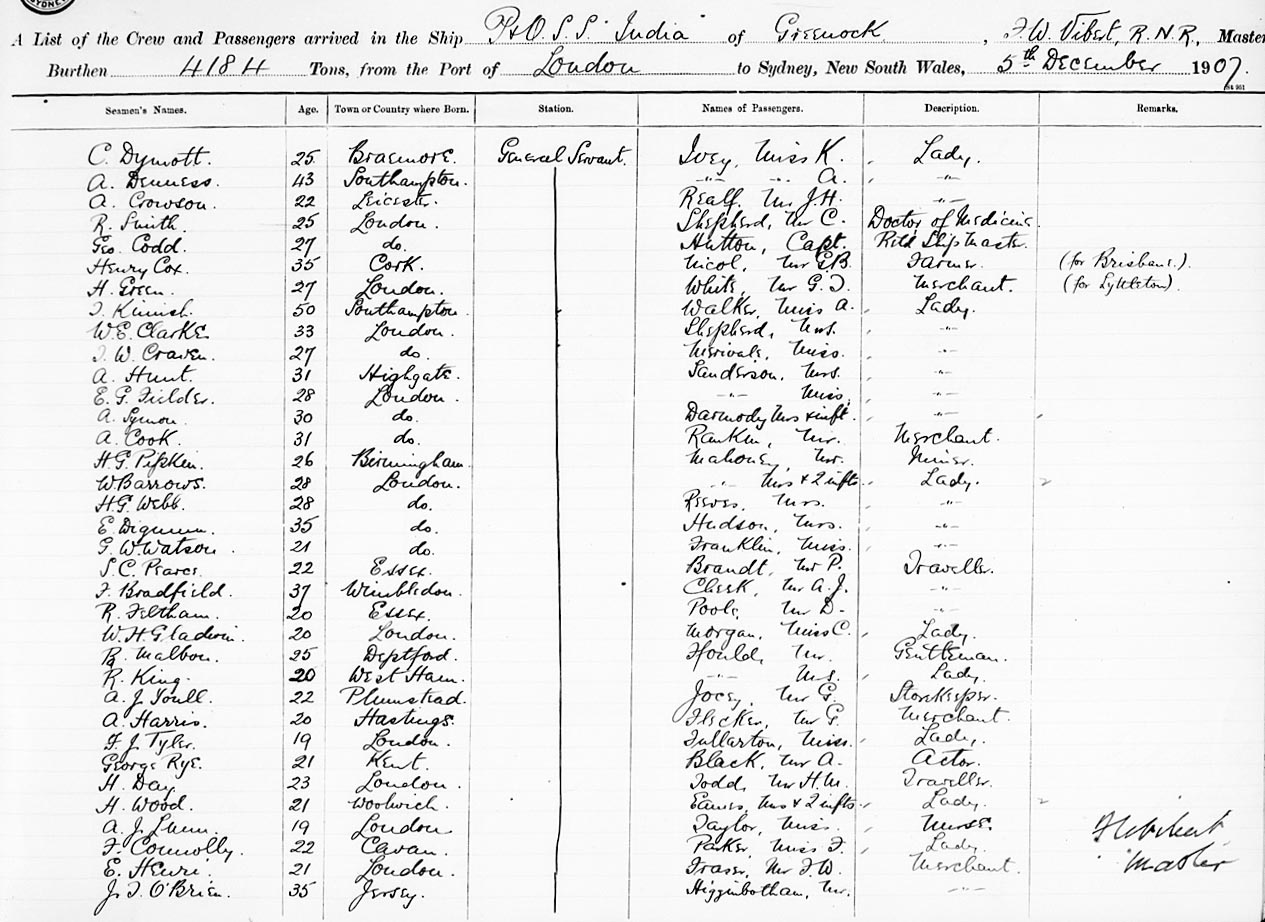 SYDNEY
A List of the Crew and Passengers arrived in the Ship P&O. S.S. India of Greenock, F.W. Vibert, R.N.R., Master
Burthen 4184 Tons, from the Port of London to Sydney, New South Wales, 5th December 1907.
Seamen's Names. Age. Town or Country where Born. Station. Names of Passengers. Description. Remarks.
C. Dymott. 25 Braemore. General Servant. Ivey, Miss K. Lady.
A. Denness. 43 Southampton. -"- -"- A. -"-
A. Crowson. 22 Leicester. Realf, Mr J.H. -"-
R. Smith. 25 London. Shepherd, Mr C. Doctor of Medicine.
Geo. Codd. 27 do. Hutton, Capt. Retd Ship Master.
Henry Cox. 35 Cork. Nicol, Mr G.B. Farmer. (for Brisbane.)
H. Green. 27 London. White, Mr G.I. Merchant. (for Lyttleton).
50 Southampton. Walker, Miss A. Lady.
W.E. Clarke 33 London. Shepherd, Mrs. -"-
W. Craven. 27 do. Merivale, Miss. -"-
A. Hunt. 31 Highgate. Sanderson, Mrs. -"-
E.G. Fielder. 28 London. -"- Miss. -"-
A. Symon. 30 do. Darmody Mrs & inft. -"-
A. Cook. 31 do. Rankin, Mr. Merchant.
H.G. Pipkin. 26 Birmingham. Mahoney, Mr. Miner.
W Barrows. 28 London. -"- Mrs & 2 infts. Lady.
H.G. Webb. 28 do. Reeves, Mrs. -"-
E. Dignum. 35 do. Hudson, Mrs. -"-
G.W. Watson. 21 do. Franklin, Miss. -"-
S.C. Pearce. 22 Essex. Brandt, Mr P. Traveller.
F. Bradfield. 37 Wimbledon. Cheek, Mr A.J. -"-
R. Feltham. 20 Essex. Poole, Mr D. -"-
W.H. Gladwin. 20 London. Morgan, Miss C. Lady.
R. Malbon. 25 Deptford. Hould, Mr. Gentleman.
R. King. 20 West Ham. -"- Mrs. Lady.
A.J. Youll. 22 Plumstead. Jocey, Mr G. Storekeeper.
A. Harris. 20 Hastings. Flecker, Mr G. Merchant.
F.J. Tyler. 19 London. Fullarton, Miss. Lady.
George Rye. 21 Kent. Black, Mr A. Actor.
H. Day. 23 London. Todd, Mr H.M. Traveller.
H. Wood. 21 Woolwich. Eames, Mrs & 2 infts. Lady.
A.J. Lunn. 19 London. Taylor, Miss. Nurse. F W Vibert
F. Connolly. 22 Cavan. Parker, Miss F. Lady. Master
E. Henri. 21 London. Fraser, Mr F.W. Merchant.
J.T. O'Brien. 35 Jersey. Higginbotham, Mr. -"-